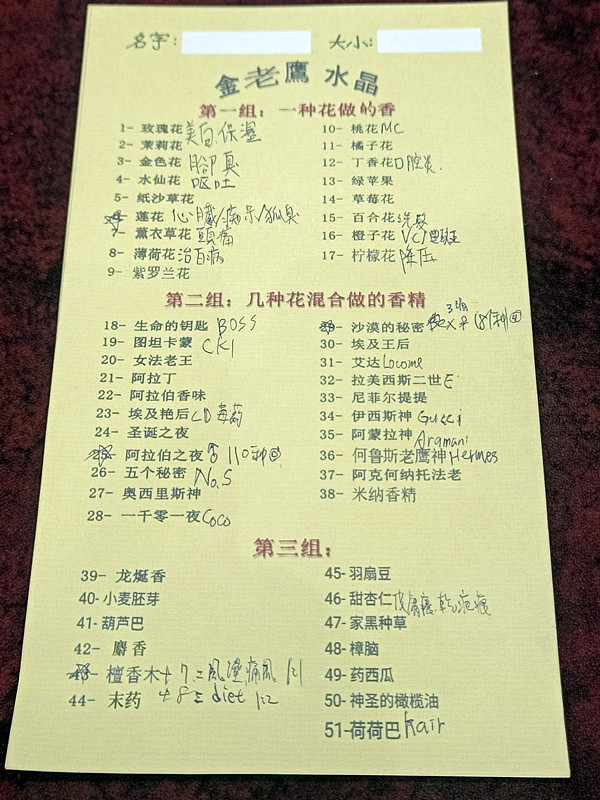 名字: 大小:
金老鹰 水晶
第一组: 一种花做的香
1- 玫瑰花 美白.保湿
2- 茉莉花
3- 金色花 腳臭
4- 水仙花 呕吐
5- 纸沙草花
莲花 心臟/痴呆/狐臭
7- 薰衣草花 頭痛
8- 薄荷花 治百病
9- 紫罗兰花
10- 桃花 MC
11- 橘子花
12- 丁香花 口腔炎.
13- 绿苹果
14- 草莓花
15- 百合花
16- 橙子花 VC/
17- 柠檬花 降压
第二组: 几种花混合做的香精
18- 生命的钥匙 BOSS
19- 图坦卡蒙 CK1
20- 女法老王
21- 阿拉丁
22- 阿拉伯香味
23- 埃及艳后 CD 毒药
24- 圣诞之夜
阿拉伯之夜 110种
26- 五个秘密 No.5
27- 奥西里斯神
28- 一千零一夜 Coco
沙漠的秘密
30- 埃及王后
31- 艾达 Locome
32- 拉美西斯二世 E
33- 尼菲尔提提
34- 伊西斯神 Gusci
35- 阿蒙拉神 Aramani
36- 何鲁斯老鹰神 Hermes
37- 阿克何纳托法老
38- 米纳香精
第三组:
39- 龙涎香
40- 小麦胚芽
41- 葫芦巴
42- 麝香
檀香木 + 7 = 風溼痛風 1:1
44- 末药 + 8 = diet 1:2
45- 羽扇豆
46- 甜杏仁
47- 家黑种草
48- 樟脑
49- 药西瓜
50- 神圣的橄榄油
51- 荷荷巴 Hair